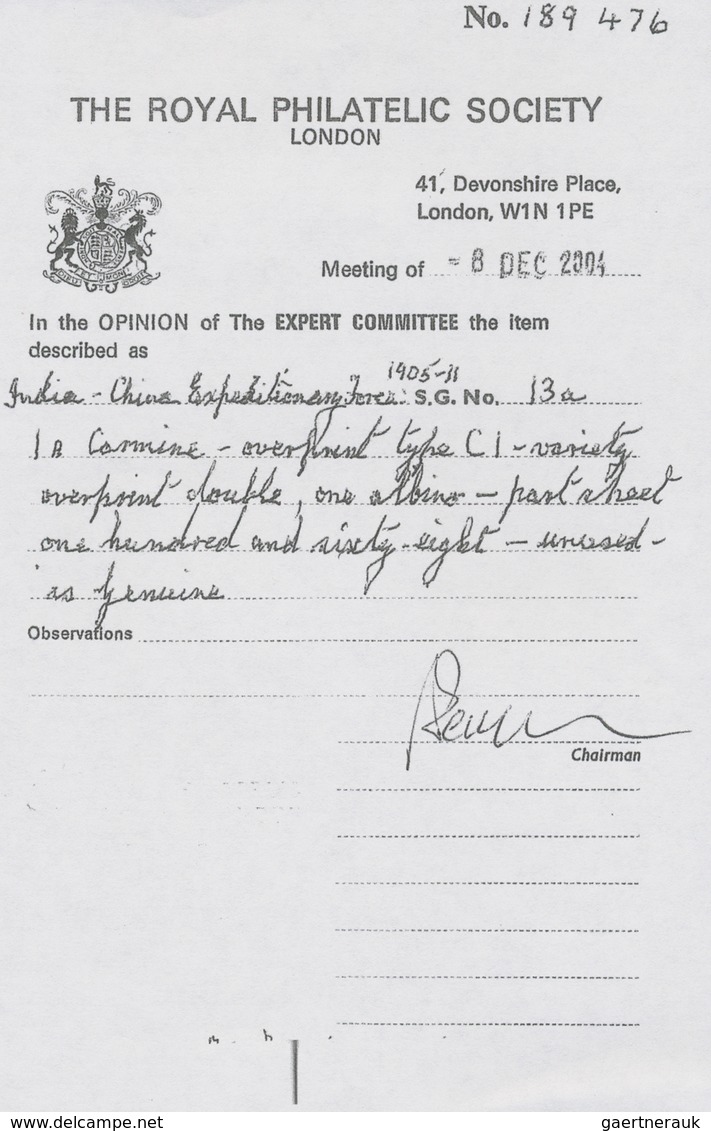 No. 189 476
THE ROYAL PHILATELIC SOCIETY
LONDON
41, Devonshire Place,
London, W1N 1PE
Meeting of - 8 DEC 2004
In the OPINION of The EXPERT COMMITTEE the item
described as
1905-11
India - China Expeditionary Force S.G. No. 13a
1a Carmine - overprint type C1 - variety
overprint double, one albino - part sheet
one hundred and sixty-eight - unused -
is genuine
Observations
Chairman
www.delcampe.net
gaertnerauk